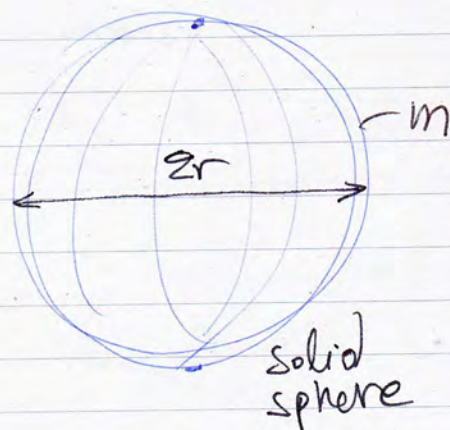 m
2r
solid
sphere